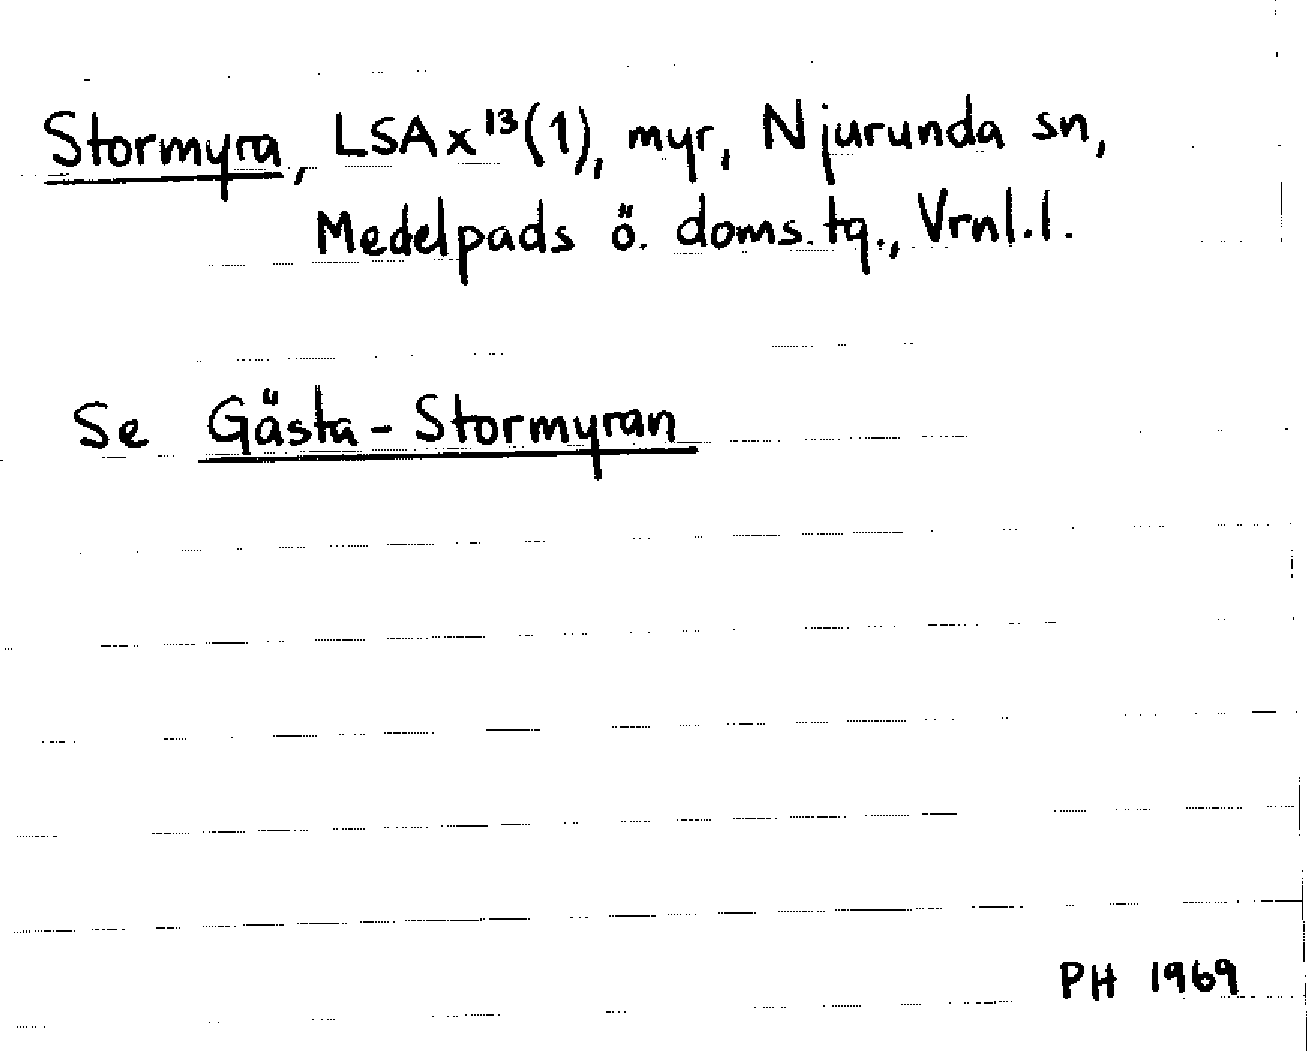 Stormyra, LSA x¹³(1), myr, Njurunda sn,
Medelpads ö. doms.tq., Vrnl.l.
Se Gästa-Stormyran
PH 1969